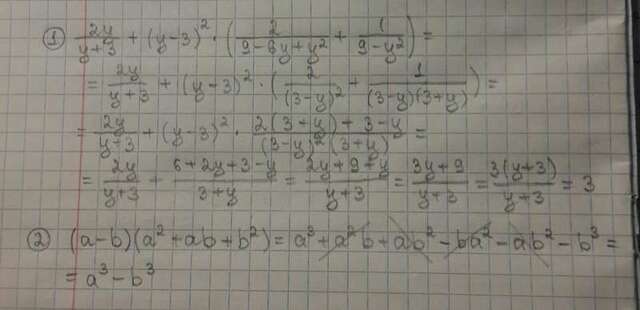 ① 2y/(y+3) + (y-3)² · (2/(9-6y+y²) + 1/(9-y²)) =
= 2y/(y+3) + (y-3)² · (2/(3-y)² + 1/((3-y)(3+y))) =
= 2y/(y+3) + (y-3)² · (2(3+y)+3-y)/((3-y)²(3+y)) =
= 2y/(y+3) + (6+2y+3-y)/(3+y) = (2y+9+y)/(y+3) = (3y+9)/(y+3) = 3(y+3)/(y+3) = 3
② (a-b)(a²+ab+b²) = a³+a²b+ab²-ba²-ab²-b³ =
= a³-b³